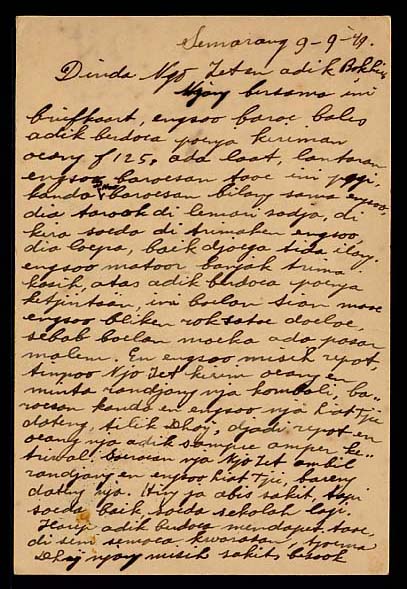 Semarang 9-9-'49.
Dinda Njo Jet en adik
Njonj bersama ini
briefkaart, engsoo baroe bales
adik berdoea poenja kiriman
oeang f 125, ada laat, lantaran
engsoo baroesan taoe ini pagi,
kanda baroesan bilang sama engsoo,
dia taroek di lemari sadja, di
kira soeda di trimaken engsoo
dia loepa, baik djoega tida ilang.
engsoo matoor banjak trima
kasih, atas adik berdoea poenja
ketjintaän, ini boelan Sian maoe
engsoo bliken rok satoe doeloe,
sebab boelan moeka ada pasar
malem. En engsoo musih repot,
tempoo Njo Jet kirim oeang en
minta randjang nja kombali, ba-
roesan kanda en engsoo nja
dateng, tilik Dhoj, djadi repot en
oeang nja adik sampe amper ke-
trimal. baroesan nja Njo Jet ambil
randjang en engsoo, bareng
dateng nja. abis sakit, tapi
soeda baik, soeda sekolah lagi.
Harep adik berdoea mendapet taoe,
di sini semoea kwarasan, tjoema
Dhoj njang musih sakit, besook